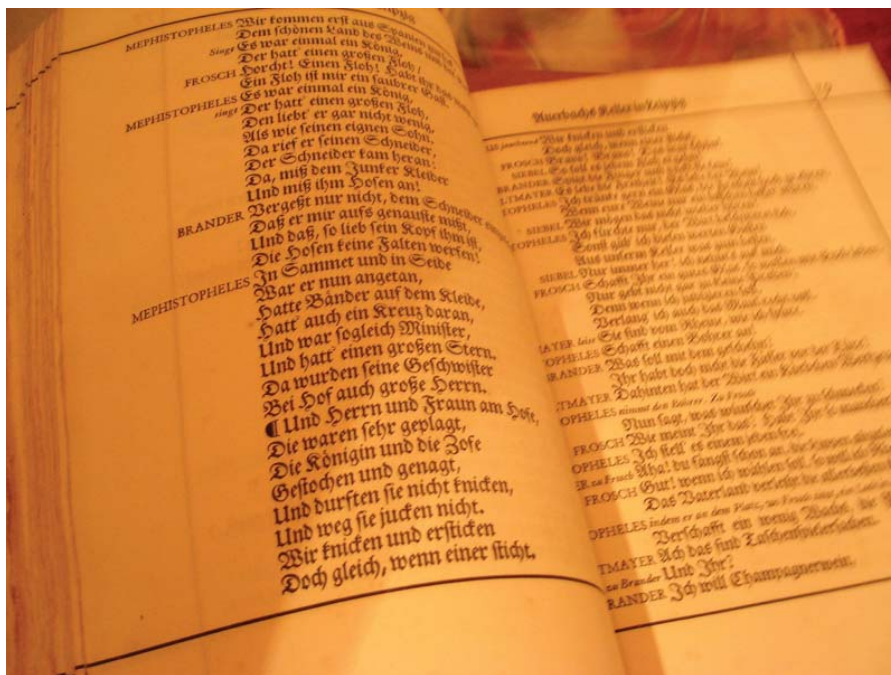 MEPHISTOPHELES Wir kommen erst aus Spanien
Dem schönen Land des Weins und
Singt Es war einmal ein König,
Der hatt' einen großen Floh!
FROSCH Horcht! Einen Floh! Habt ihr das
Ein Floh ist mir ein saubrer Gast.
MEPHISTOPHELES Es war einmal ein König,
singt Der hatt' einen großen Floh,
Den liebt' er gar nicht wenig,
Als wie seinen eignen Sohn.
Da rief er seinen Schneider;
Der Schneider kam heran:
Da, miß dem Junker Kleider
Und miß ihm Hosen an!
BRANDER Vergeßt nur nicht, dem Schneider
Daß er mir aufs genauste mißt,
Und daß, so lieb sein Kopf ihm ist,
Die Hosen keine Falten werfen!
MEPHISTOPHELES In Sammet und in Seide
War er nun angetan,
Hatte Bänder auf dem Kleide,
Hatt' auch ein Kreuz daran,
Und war sogleich Minister,
Und hatt' einen großen Stern.
Da wurden seine Geschwister
Bei Hof auch große Herrn.
¶ Und Herrn und Fraun am Hofe,
Die waren sehr geplagt,
Die Königin und die Zofe
Gestochen und genagt,
Und durften sie nicht knicken,
Und weg sie jucken nicht.
Wir knicken und ersticken
Doch gleich, wenn einer sticht.
Auerbachs Keller in Leipzig
Wir knicken und ersticken
Doch gleich, wenn einer sticht.
FROSCH Bravo! Bravo!
SIEBEL So soll es jedem Floh
BRANDER
LTMAYER Es lebe die Freiheit!
TOPHELES Ich tränke gern ein Glas,
Wenn eure Weine nur
SIEBEL Wir mögen das nicht
TOPHELES Ich
Sonst
Aus unserm Keller
SIEBEL Nur immer her!
FROSCH Schafft Ihr ein gutes Glas,
Nur gebt nicht gar
Denn wenn ich
Verlang ich auch das Maul
MAYER leise Sie sind vom Rheine,
TOPHELES Schafft einen Bohrer an!
BRANDER Was soll mit dem geschehn?
Ihr habt doch nicht die Fässer vor der Türe?
TMAYER Dahinten hat der Wirt ein
TOPHELES nimmt den Bohrer. Zu Frosch
Nun sagt, was wünschet Ihr zu schmecken?
FROSCH Wie meint Ihr das? Habt Ihr so
OPHELES Ich stell' es einem jeden frei.
ER zu Frosch Aha! du fängst schon an, die Lippen
FROSCH Gut! wenn ich wählen soll, so will ich
Das Vaterland verleiht die allerbesten
OPHELES indem er an dem Platz, wo Frosch sitzt,
Verschafft ein wenig Wachs, die
TMAYER Ach das sind Taschenspielersachen.
zu Brander Und Ihr?
RANDER Ich will Champagnerwein,